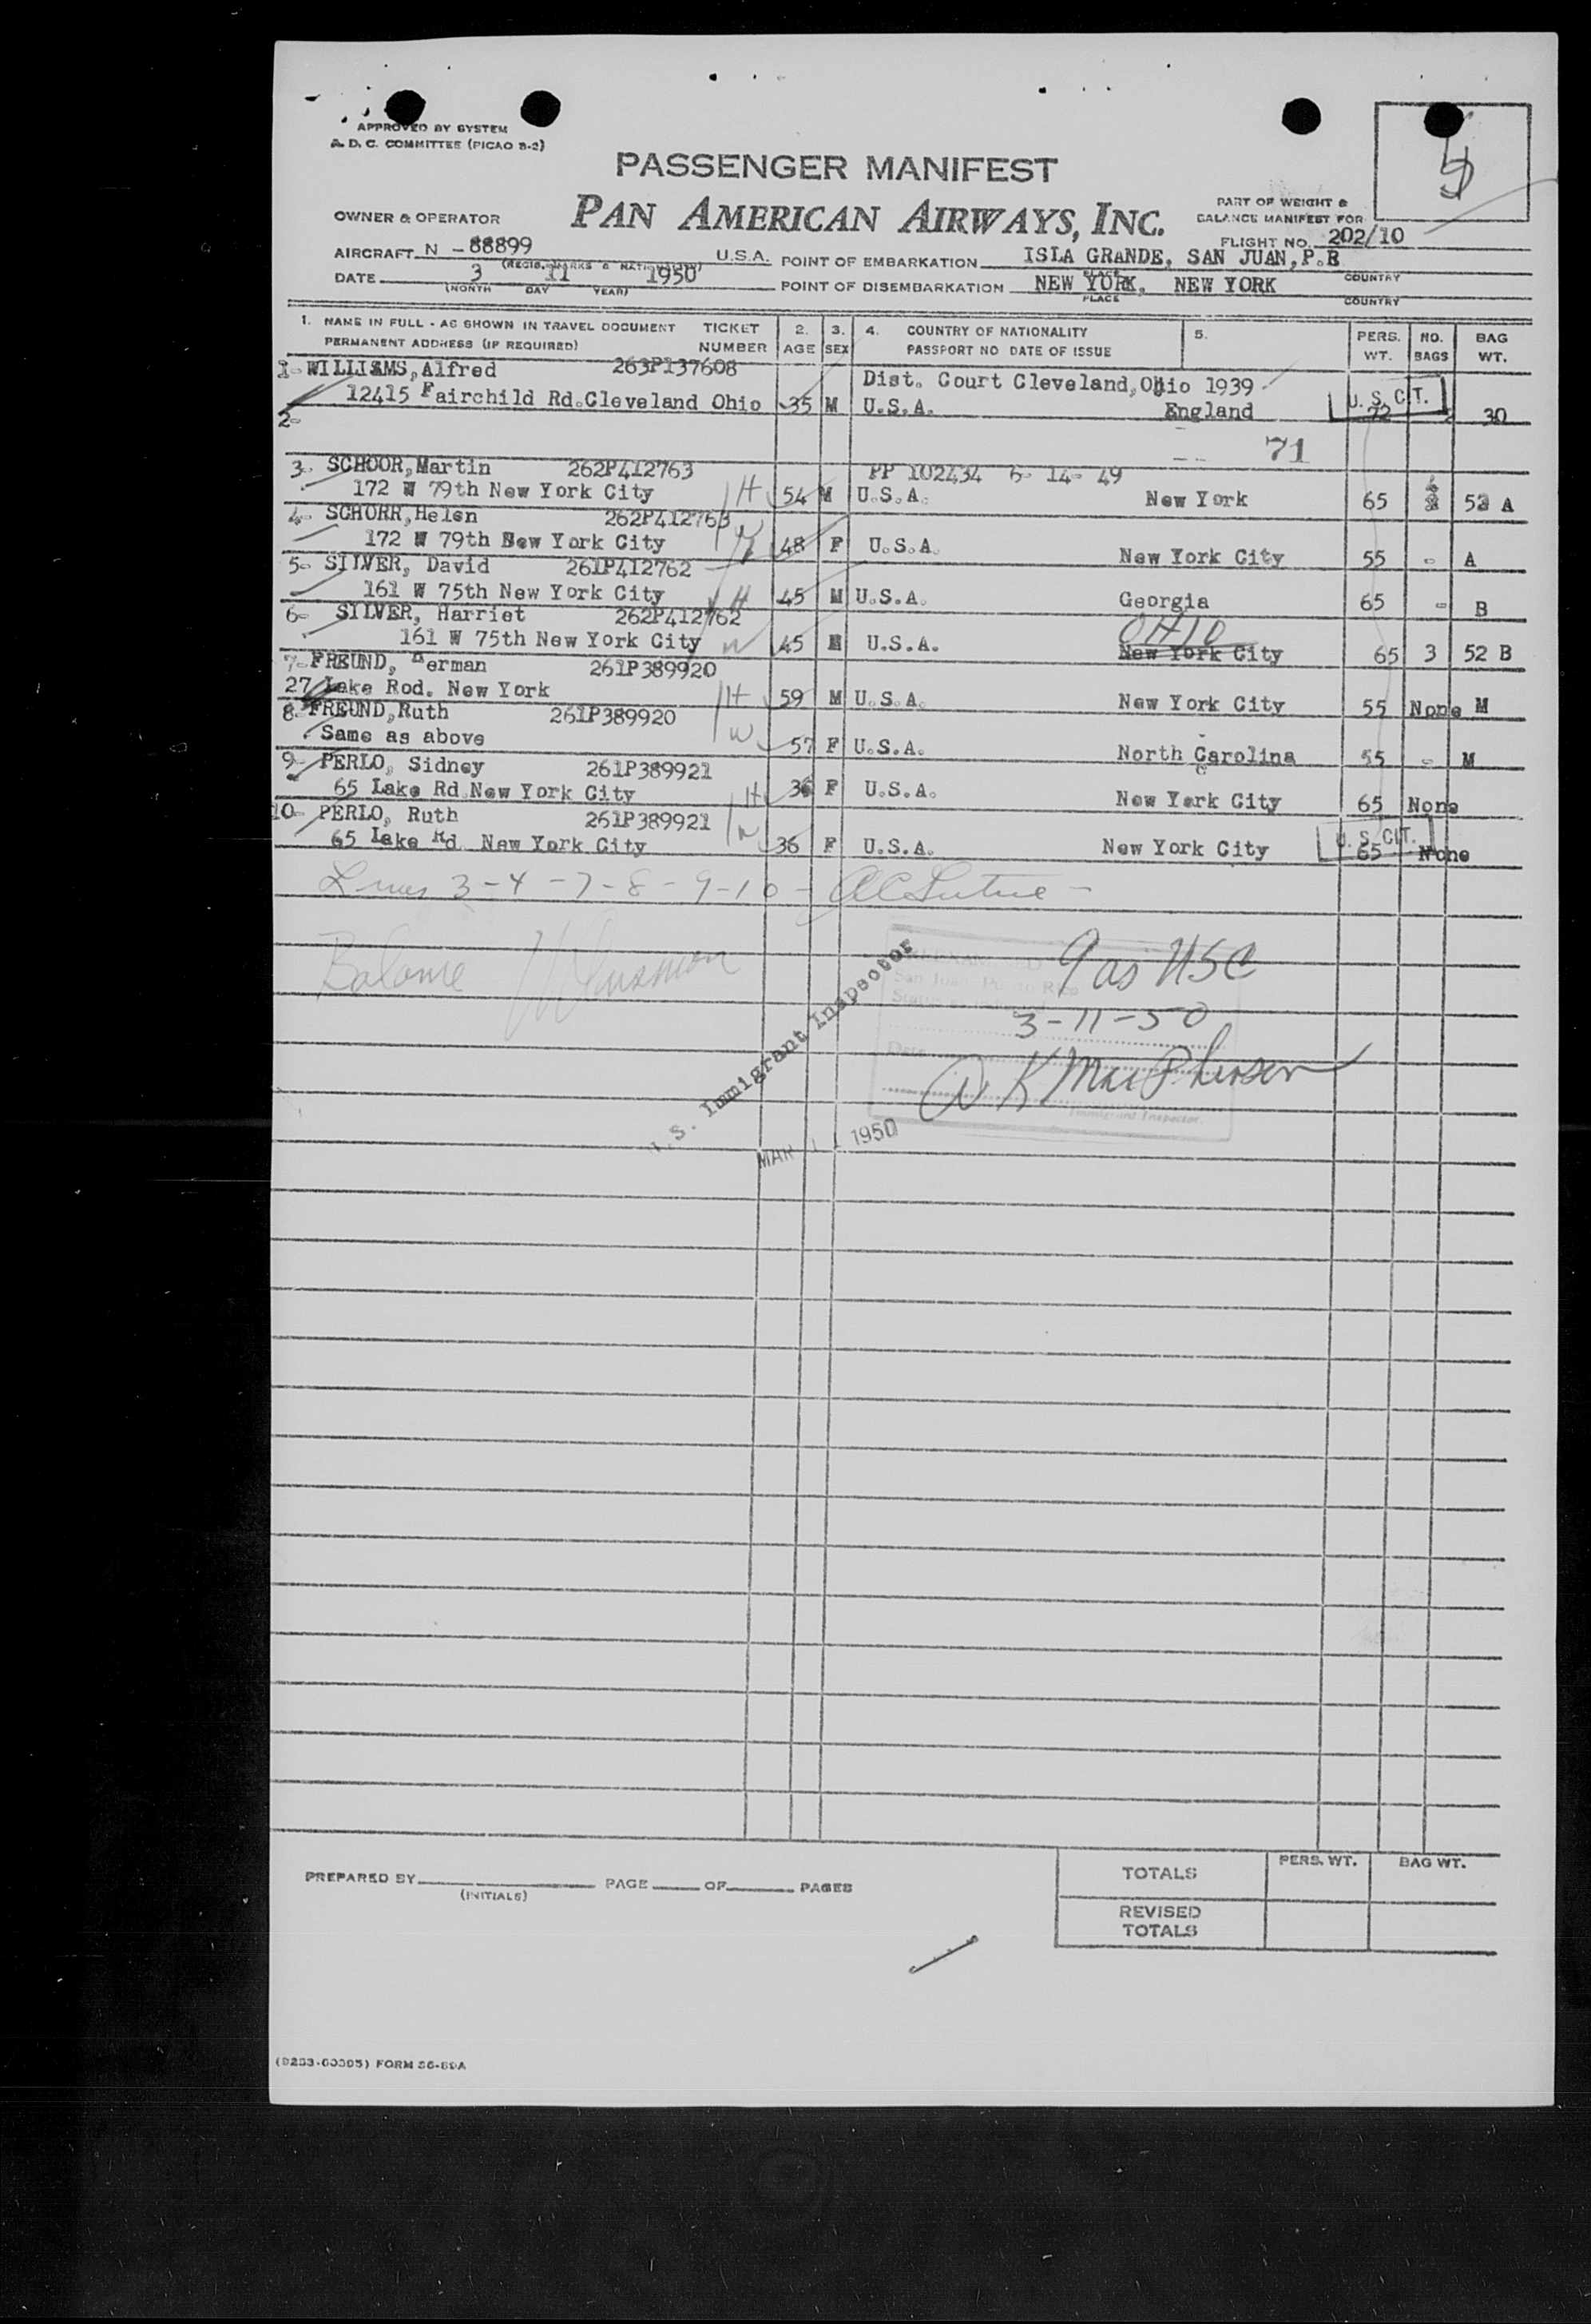 APPROVED BY SYSTEM
A. D. C. COMMITTEE (PICAO B-2)
PASSENGER MANIFEST
OWNER & OPERATOR PAN AMERICAN AIRWAYS, INC.
PART OF WEIGHT &
BALANCE MANIFEST FOR
FLIGHT NO. 202/10
AIRCRAFT N - 88899 U.S.A. POINT OF EMBARKATION ISLA GRANDE, SAN JUAN, P.R
(REGIS. MARKS & NATIONALITY) PLACE COUNTRY
DATE 3 11 1950 POINT OF DISEMBARKATION NEW YORK, NEW YORK
(MONTH DAY YEAR) PLACE COUNTRY
1. NAME IN FULL - AS SHOWN IN TRAVEL DOCUMENT TICKET 2. 3. 4. COUNTRY OF NATIONALITY 5. PERS. NO. BAG
PERMANENT ADDRESS (IF REQUIRED) NUMBER AGE SEX PASSPORT NO DATE OF ISSUE WT. BAGS WT.
1- WILLIAMS, Alfred 263P137608 Dist. Court Cleveland, Ohio 1939
12415 Fairchild Rd. Cleveland Ohio 35 M U.S.A. England U. S. CIT. 72 30
2-
71
3. SCHOOR, Martin 262P412763 PP 102434 6- 14- 49
172 W 79th New York City H 54 M U.S.A. New York 65 53 A
4- SCHORR, Helen 262P412763
172 W 79th New York City W 48 F U.S.A. New York City 55 - A
5- SILVER, David 261P412762
161 W 75th New York City H 45 M U.S.A. Georgia 65 - B
6- SILVER, Harriet 262P412762 OHIO
161 W 75th New York City W 45 M U.S.A. New York City 65 3 52 B
7- FREUND, Herman 261P389920
27 Lake Rod. New York H 59 M U.S.A. New York City 55 None M
8- FREUND, Ruth 261P389920
Same as above W 57 F U.S.A. North Carolina 55 - M
9- PERLO, Sidney 261P389921
65 Lake Rd New York City H 36 F U.S.A. New York City 65 None
10- PERLO, Ruth 261P389921
65 Lake Rd New York City W 36 F U.S.A. New York City U. S. CIT. 65 None
Lines 3-4-7-8-9-10-
Balance
9 as USC
San Juan Puerto Rico
3-11-50
Date
D K MacPherson
Immigrant Inspector
U.S. Immigrant Inspector
MAR 11 1950
PREPARED BY PAGE OF PAGES
(INITIALS)
PERS. WT. BAG WT.
TOTALS
REVISED
TOTALS